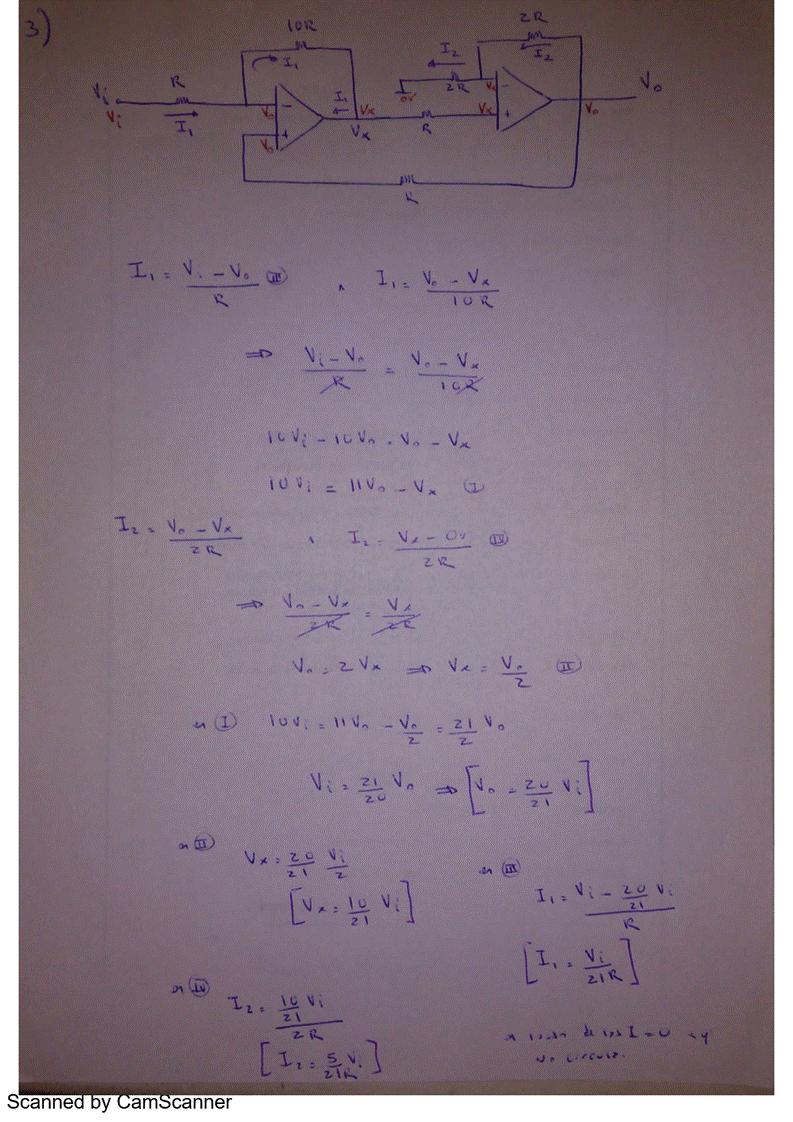 3)
10R
2R
I₁
I₂
I₂
R
Vi
Vi
I₁
Vo
Vo
-
+
I₁
Vx
Vx
0V
2R
Vx
Vx
R
-
+
Vo
Vo
R
I₁ = (Vi - Vo)/R (III) ∧ I₁ = (Vo - Vx)/10R
⇒ (Vi - Vo)/R = (Vo - Vx)/10R
10Vi - 10Vo = Vo - Vx
10Vi = 11Vo - Vx (I)
I₂ = (Vo - Vx)/2R ∧ I₂ = (Vx - 0v)/2R (IV)
⇒ (Vo - Vx)/2R = Vx/2R
Vo = 2Vx ⇒ Vx = Vo/2 (II)
(I) 10Vi = 11Vo - Vo/2 = 21/2 Vo
Vi = 21/20 Vo ⇒ [Vo = 20/21 Vi]
(II) Vx = 20/21 Vi/2
[Vx = 10/21 Vi]
(III)
I₁ = (Vi - 20/21 Vi)/R
[I₁ = Vi/21R]
(IV) I₂ = (10/21 Vi)/2R
[I₂ = 5/21R Vi]
I = 0
Scanned by CamScanner